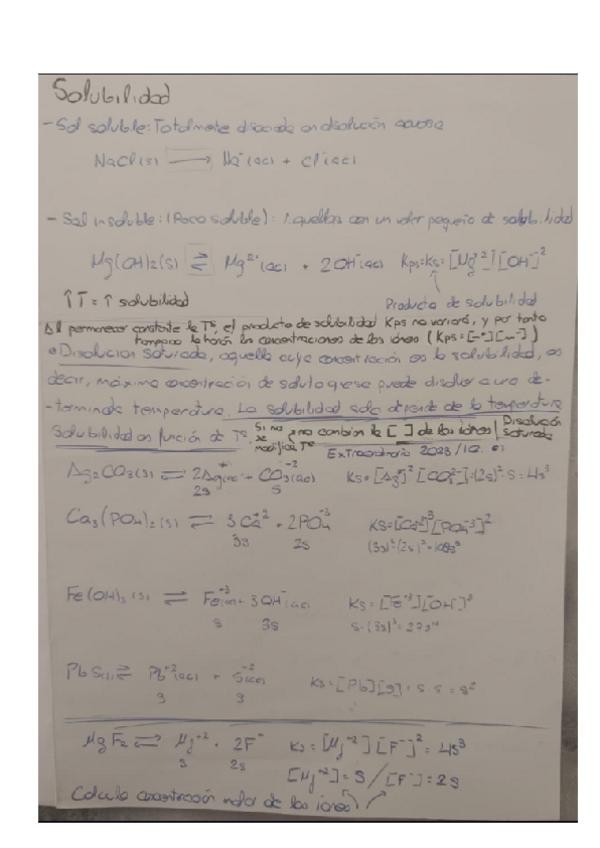 Solubilidad
- Sal soluble: Totalmente disociada en disolución acuosa
NaCl(s) → Na⁺(ac) + Cl⁻(ac)
- Sal insoluble: (Poco soluble): Aquellas con un valor pequeño de solubilidad
Mg(OH)2(s) ⇌ Mg²⁺(ac) + 2OH⁻(ac) Kps=Ks=[Mg⁺²][OH⁻]²
↑T = ↑ solubilidad Producto de solubilidad
Al permanecer constante la Tª, el producto de solubilidad Kps no variará, y por tanto
tampoco lo harán las concentraciones de los iones (Kps=[ ][ ])
Disolución saturada, aquella cuya concentración es la solubilidad, es
decir, máxima concentración de soluto que se puede disolver a una de-
-terminada temperatura. La solubilidad solo depende de la temperatura
Solubilidad en función de Tª Si no se modifica Tª no cambian la [ ] de los iones | Disolución saturada
Extraordinaria 2023/10.
Ag2CO3(s) ⇌ 2Ag⁺(ac) + CO3⁻²(ac) Ks=[Ag⁺]²[CO3²⁻]=(2s)²·s=4s³
2s s
Ca3(PO4)2(s) ⇌ 3Ca⁺² + 2PO4⁻³ Ks=[Ca⁺²]³[PO4⁻³]²
3s 2s (3s)³(2s)²=108s⁵
Fe(OH)3(s) ⇌ Fe⁺³(ac) + 3OH⁻(ac) Ks=[Fe⁺³][OH⁻]³
s 3s s·(3s)³=27s⁴
PbS(s) ⇌ Pb⁺²(ac) + S⁻²(ac) Ks=[Pb][S]=s·s=s²
s s
MgF2 ⇌ Mg⁺² + 2F⁻ Ks=[Mg⁺²][F⁻]²=4s³
s 2s
[Mg⁺²]=s/[F⁻]=2s
Calcula concentración molar de los iones